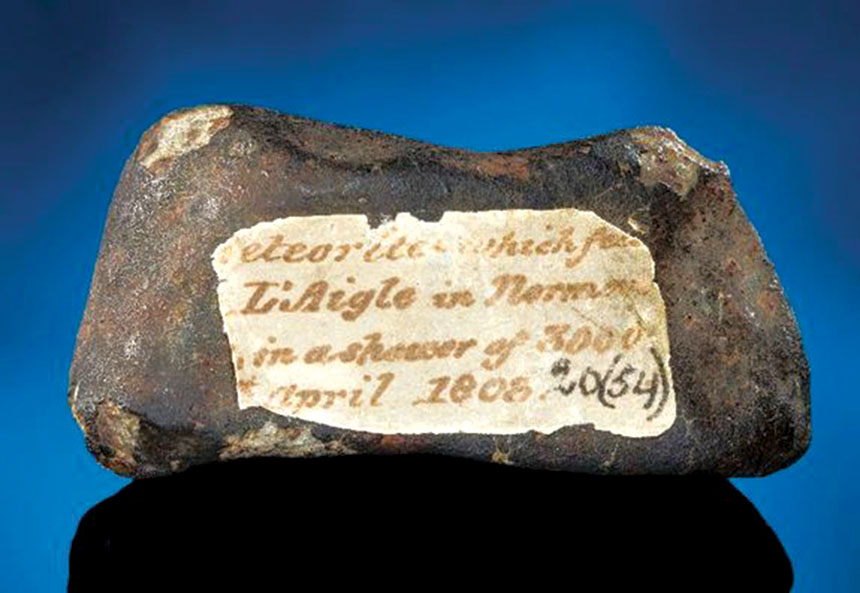 eteorite which fe
L'Aigle in Norman
in a shower of 3000
April 1803. 20(54)